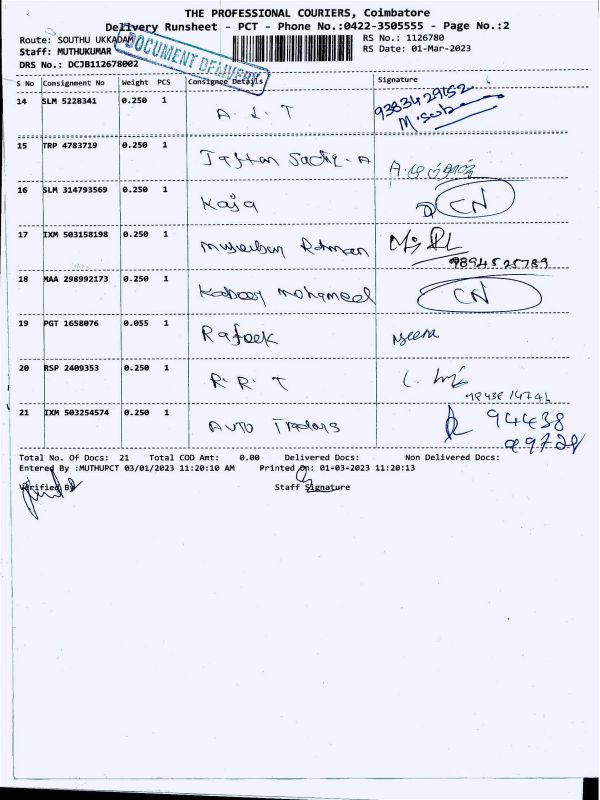 THE PROFESSIONAL COURIERS, Coimbatore
Delivery Runsheet - PCT - Phone No.:0422-3505555 - Page No.:2
Route: SOUTHU UKKADAM
RS No.: 1126780
Staff: MUTHUKUMAR
RS Date: 01-Mar-2023
DRS No.: DCJB112678002
DOCUMENT DELIVERY
S No Consignment No Weight PCS Consignee Details Signature
14 SLM 5228341 0.250 1 A. L. T 9383429152
M. Suba
15 TRP 4783719 0.250 1 Sadiq - A
16 SLM 314793569 0.250 1 Kaja CN
17 IXM 503158198 0.250 1 Rahman
9894525789
18 MAA 298992173 0.250 1 Mohameed CN
19 PGT 1658076 0.055 1 Rafeek Meena
20 RSP 2409353 0.250 1 R. R. T
21 IXM 503254574 0.250 1 AUTO Traders 94438
Total No. Of Docs: 21 Total COD Amt: 0.00 Delivered Docs: Non Delivered Docs:
Entered By :MUTHUPCT 03/01/2023 11:20:10 AM Printed On: 01-03-2023 11:20:13
Verified By Staff Signature